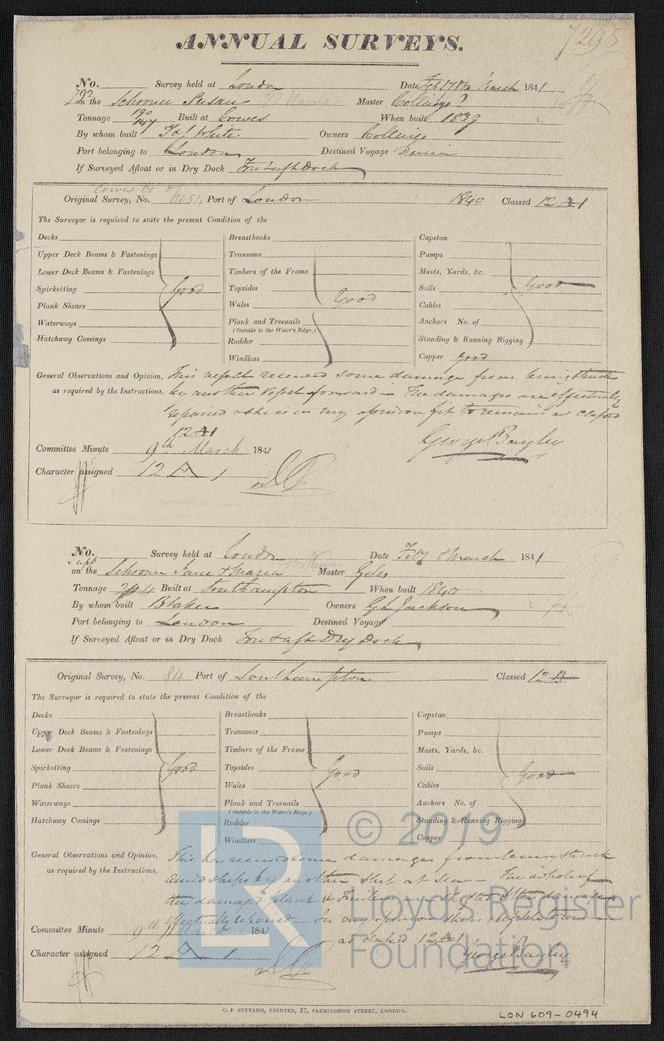 ANNUAL SURVEYS.
7295
No. 792 Survey held at London Date Feb 17 & March 1841
on the Schooner Susan Master Collings?
Tonnage 190 147 Built at Cowes When built 1839
By whom built T & J White Owners Collings
Port belonging to London Destined Voyage
If Surveyed Afloat or in Dry Dock Dock
Original Survey, No. Port of London 1840 Classed 12 A 1
The Surveyor is required to state the present Condition of the
Decks Breasthooks Capstan
Upper Deck Beams & Fastenings Transoms Pumps
Lower Deck Beams & Fastenings Timbers of the Frame Masts, Yards, &c.
Spirketting Good Topsides Good Sails Good
Plank Shears Wales Cables
Waterways Plank and Treenails Anchors No. of
(Outside to the Water's Edge.)
Hatchway Comings Rudder Standing & Running Rigging
Windlass Copper good
General Observations and Opinion, This vessel received some damage from being struck
as required by the Instructions, by another vessel forward The damages are effectually
repaired & she is in my opinion fit to remain as classed
12 A1
George Bayley
Committee Minute 9th March 1841
Character assigned 12 A 1
No. Survey held at London Date Feby & March 1841
on the Schooner Jane & Maria Master Giles
Tonnage Built at Southampton When built 1840
By whom built Blaker Owners Jackson
Port belonging to London Destined Voyage
If Surveyed Afloat or in Dry Dock Dry Dock
Original Survey, No. 84 Port of Southampton Classed 12
The Surveyor is required to state the present Condition of the
Decks Breasthooks Capstan
Upper Deck Beams & Fastenings Transoms Pumps
Lower Deck Beams & Fastenings Timbers of the Frame Masts, Yards, &c.
Spirketting Good Topsides Good Sails Good
Plank Shears Wales Cables
Waterways Plank and Treenails Anchors No. of
(Outside to the Water's Edge.)
Hatchway Comings Rudder Standing & Running Rigging
Windlass Copper
General Observations and Opinion, This has received some damages from being struck
as required by the Instructions, amidships by another ship at Sea The whole of
the damaged plank & timbers
effectually repaired
as classed 12 A1
George Bayley
Committee Minute 9th March 1841
Character assigned 12 A 1
C. F. SEYFANG, PRINTER, 57, FARRINGDON STREET, LONDON.
LON 609-0494
© 2019
LR
Lloyd's Register
Foundation